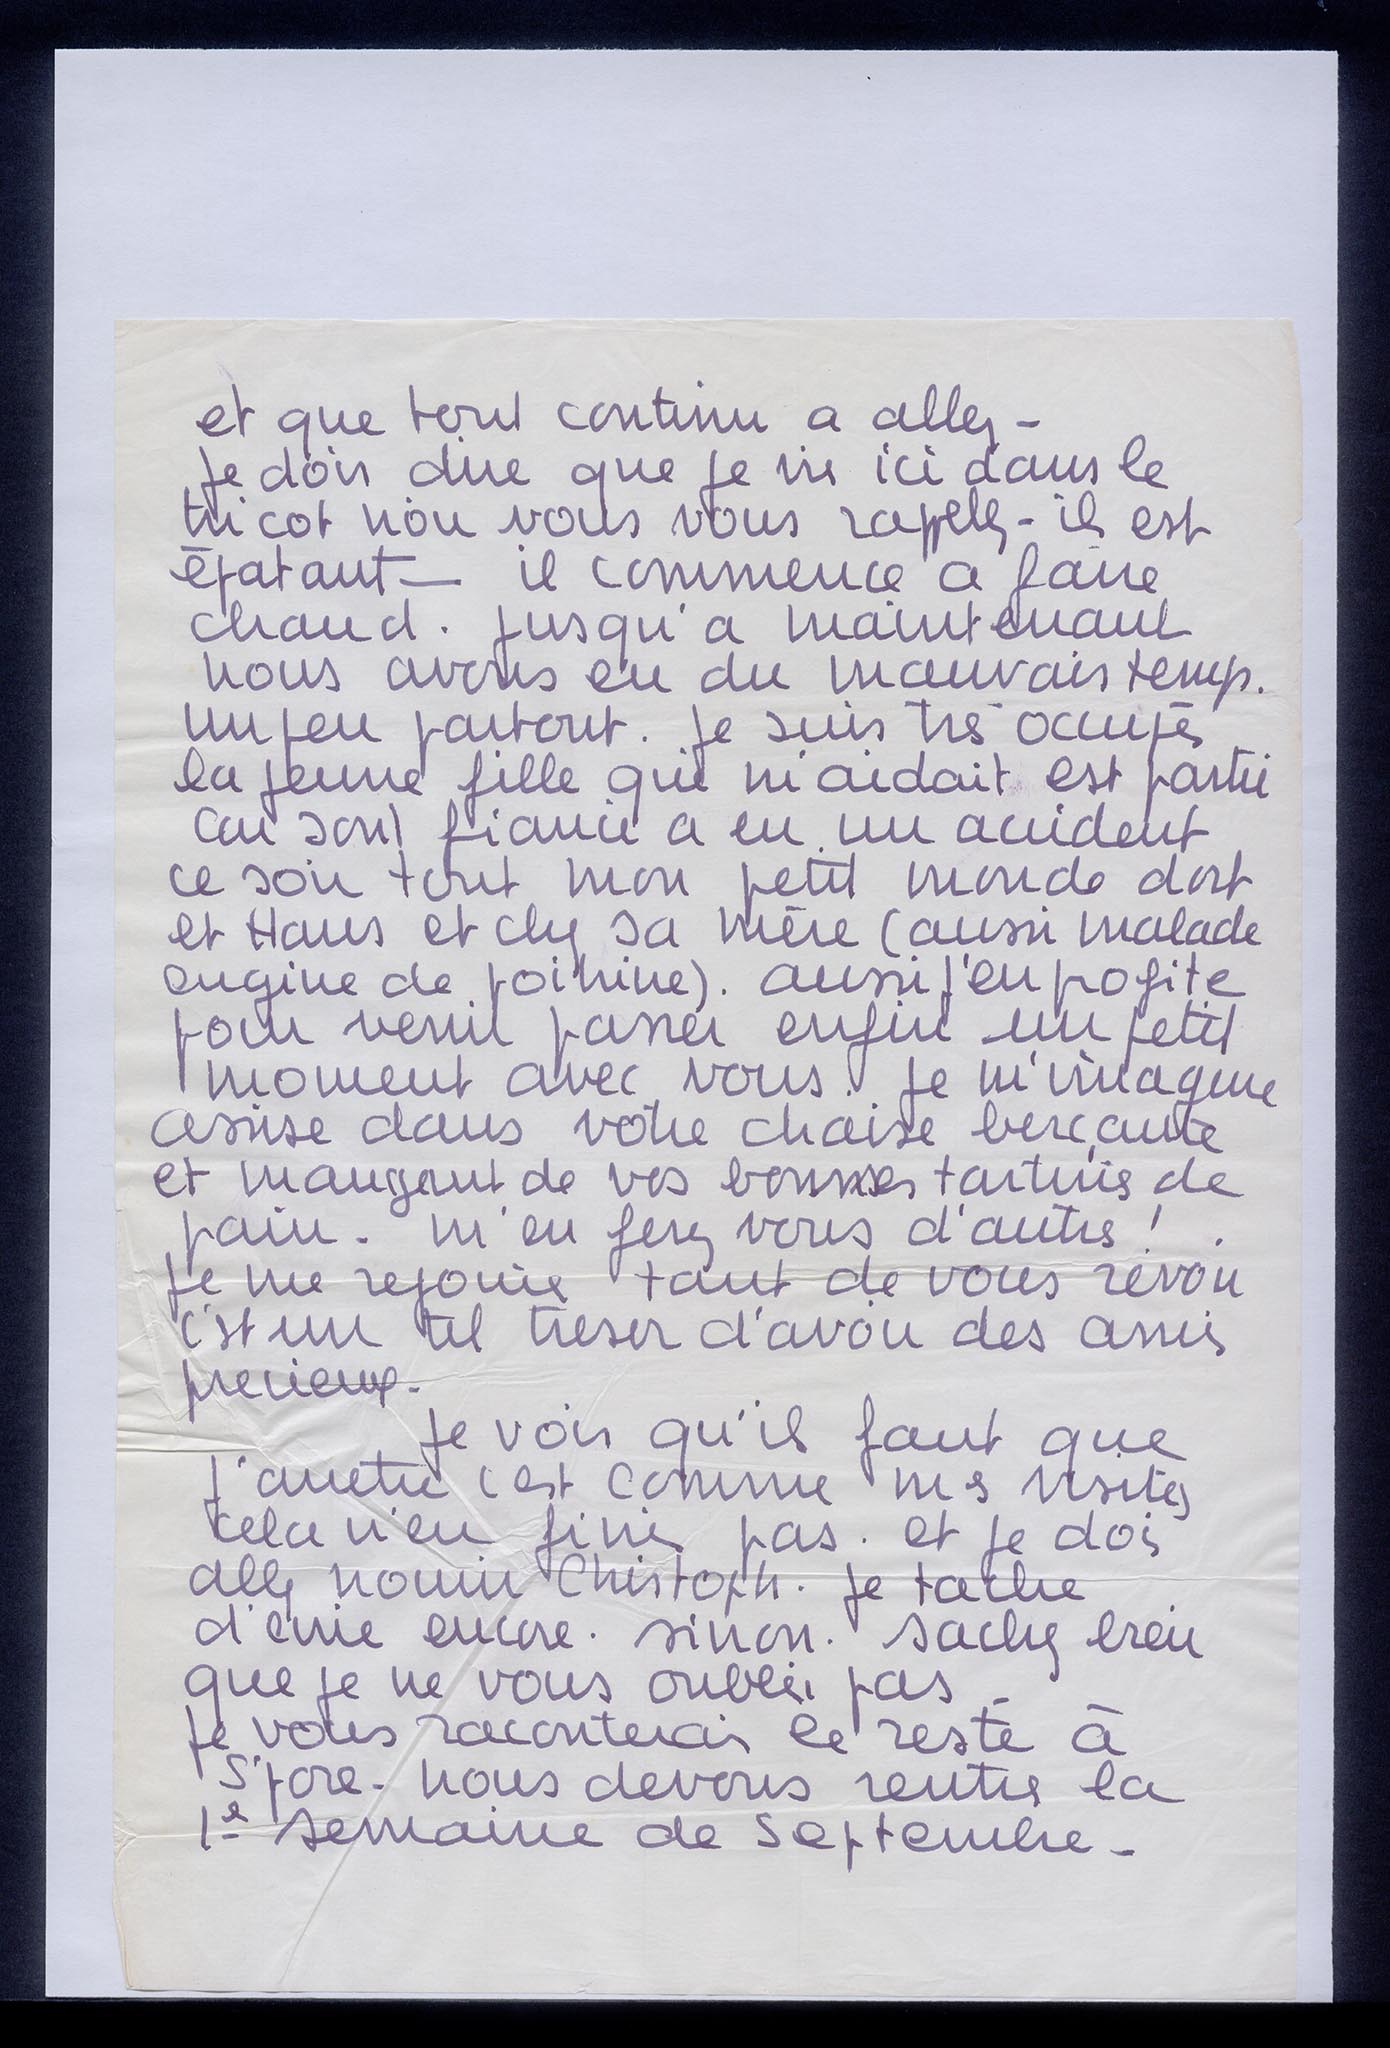 et que tout continu a allez -
Je dois dire que je vis ici dans le
tricot noir vous vous rappelez - il est
épatant - il commence a faire
chaud. Jusqu'a maintenant
nous avons eu du mauvais temp.
un peu partout. Je suis très occupés
la jeune fille qui m'aidait est partie
car son fiancé a eu un accident
ce soir tout mon petit monde dort
et Hans et chez sa mère (aussi malade
engine de poitrine). aussi j'en profite
pour venir passer enfin un petit
moment avec vous. Je m'imagine
assise dans votre chaise berçante
et mangeant de vos bonnes tartines de
pain. m'en ferez vous d'autres !
Je me rejouis tant de vous revoir
c'st un tel tresor d'avoir des amis
precieux.
Je vois qu'il faut que
j'arrete c'est comme mes visites
cela n'en finis pas. et je dois
allez nourrir Christoph. Je tache
d'ecrire encore. sinon. sachez bien
que je ne vous oublie pas
Je vous raconterais le reste à
S'pore - nous devons rentrer la
1e semaine de Septembre -